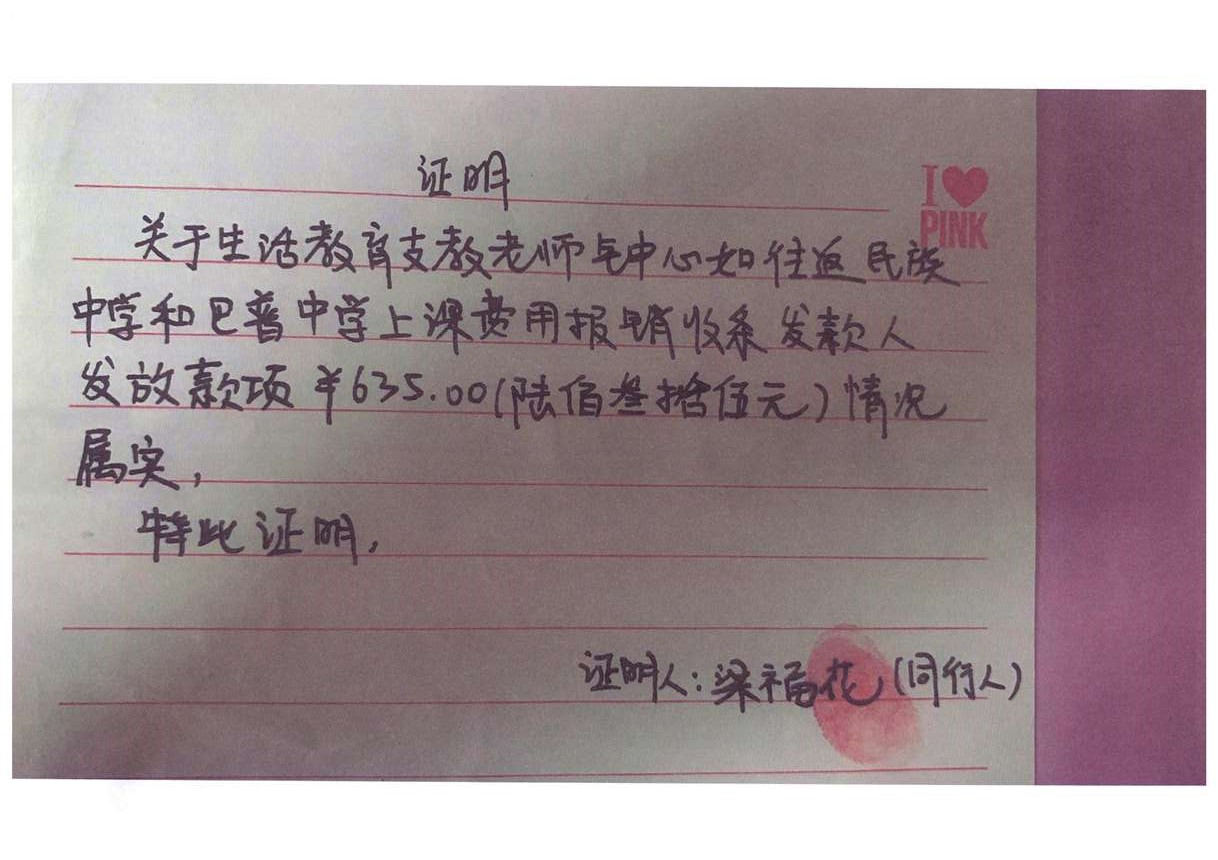 证明
I ♥
PINK
关于生活教育支教老师毛中心如往返民族
中学和巴普中学上课费用报销收条发款人
发放款项¥635.00(陆佰叁拾伍元)情况
属实,
特此证明,
证明人:梁福花(同行人)